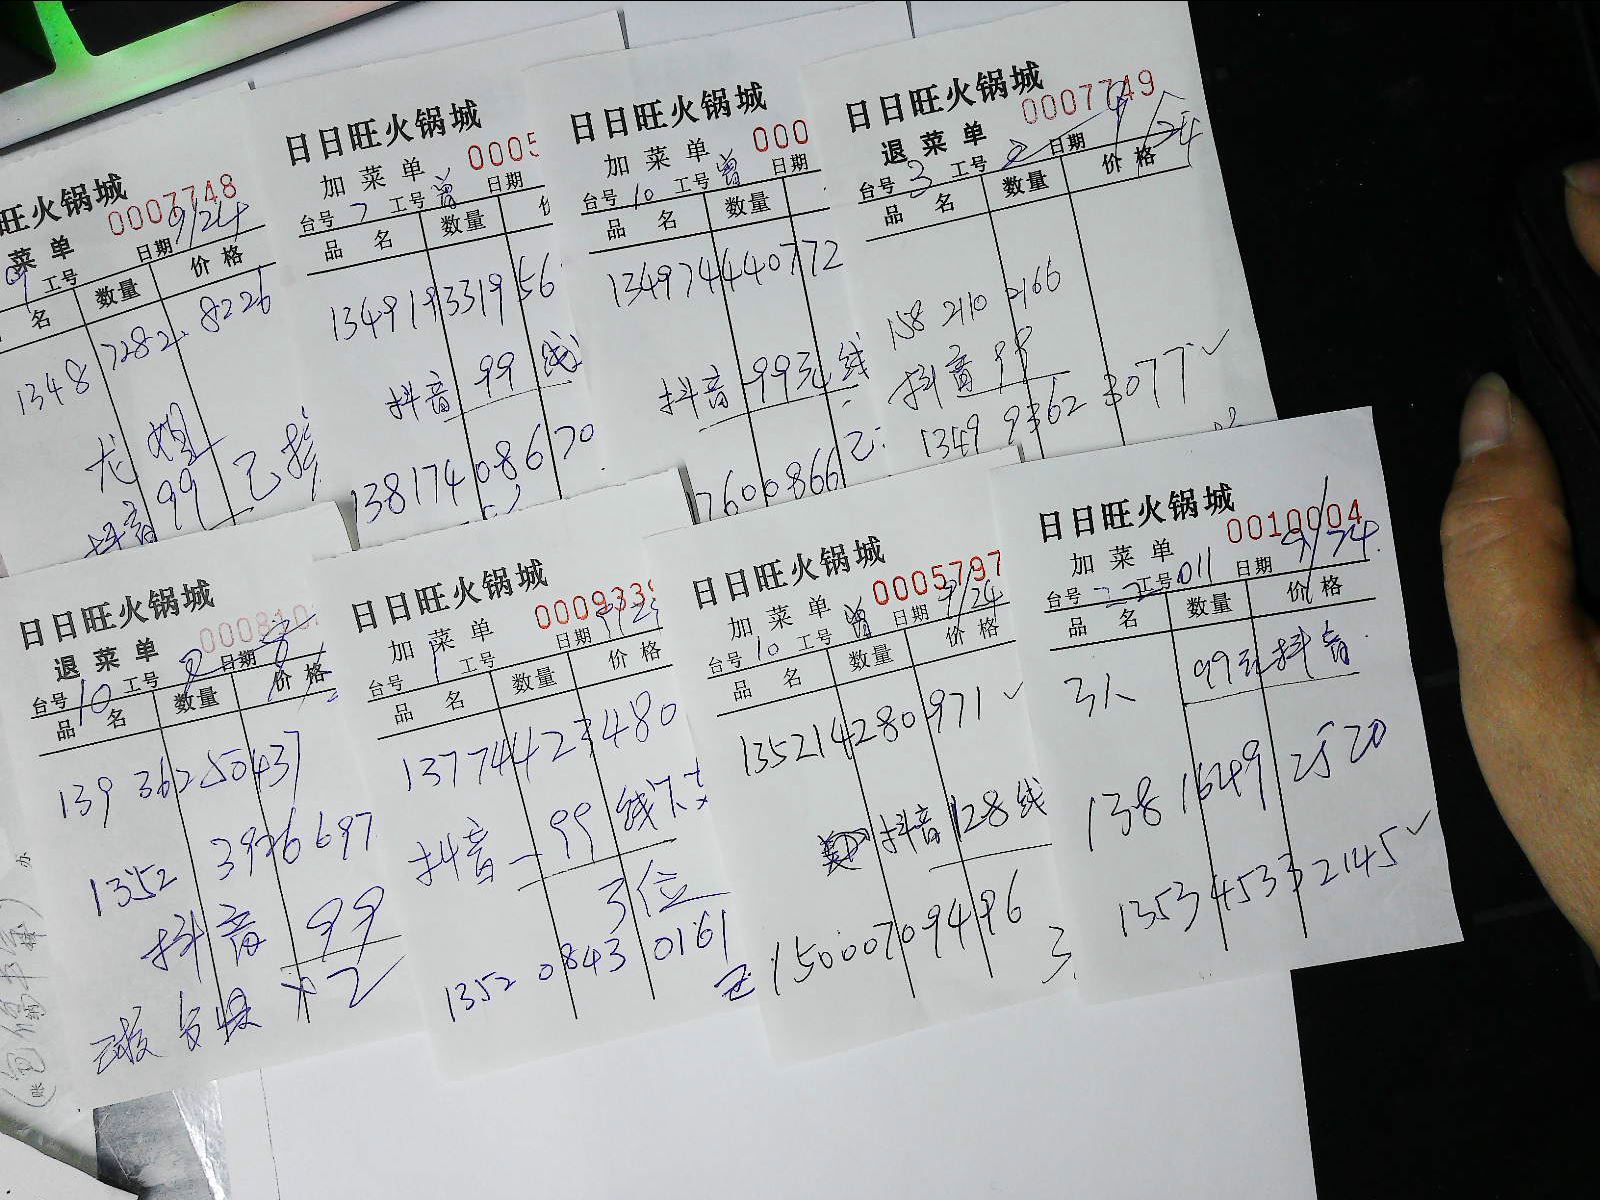 旺火锅城
0007748
菜单
9/24
9 工号 日期
名 数量 价格
1348 7282 8226
尤姐
抖音 99 已接
日日旺火锅城
加菜单 0005
台号 7 工号 曾 日期
品名 数量
13491933195 6
抖音 99 线
13817408670
日日旺火锅城
加菜单 000
台号 10 工号 曾 日期
品名 数量
13497440772
抖音 99元 线
7600866
日日旺火锅城
0007749
退菜单 9/24
台号 3 工号 日期
品名 数量 价格
158 2110 2166
抖音 99
1349 9362 3077 ✓
日日旺火锅城
退菜单
台号 10 工号 日期
品名 数量 价格
139 36250437
1352 3926697
抖音 99
×2
日日旺火锅城
加菜单 000933
台号 1 工号 日期
品名 数量 价格
13774423480
抖音一99 线下
3位
1352 0843 0161
日日旺火锅城
加菜单 0005797
台号 10 工号 曾 日期 9/24
品名 数量 价格
13521428097 1 ✓
抖音 128 线
15000709496
日日旺火锅城
加菜单 0010004
台号 22 工号 011 日期 9/24
品名 数量 价格
3人 99元抖音
138 1649 2520
1353 4533 2145 ✓